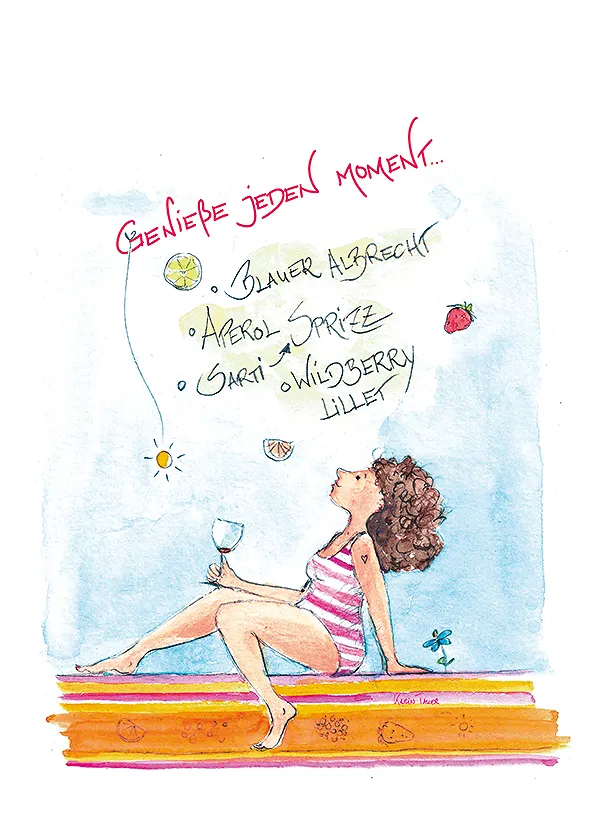 Genieße jeden Moment...
Blauer Albrecht
Aperol Sprizz
Sarti Wildberry
Lillet